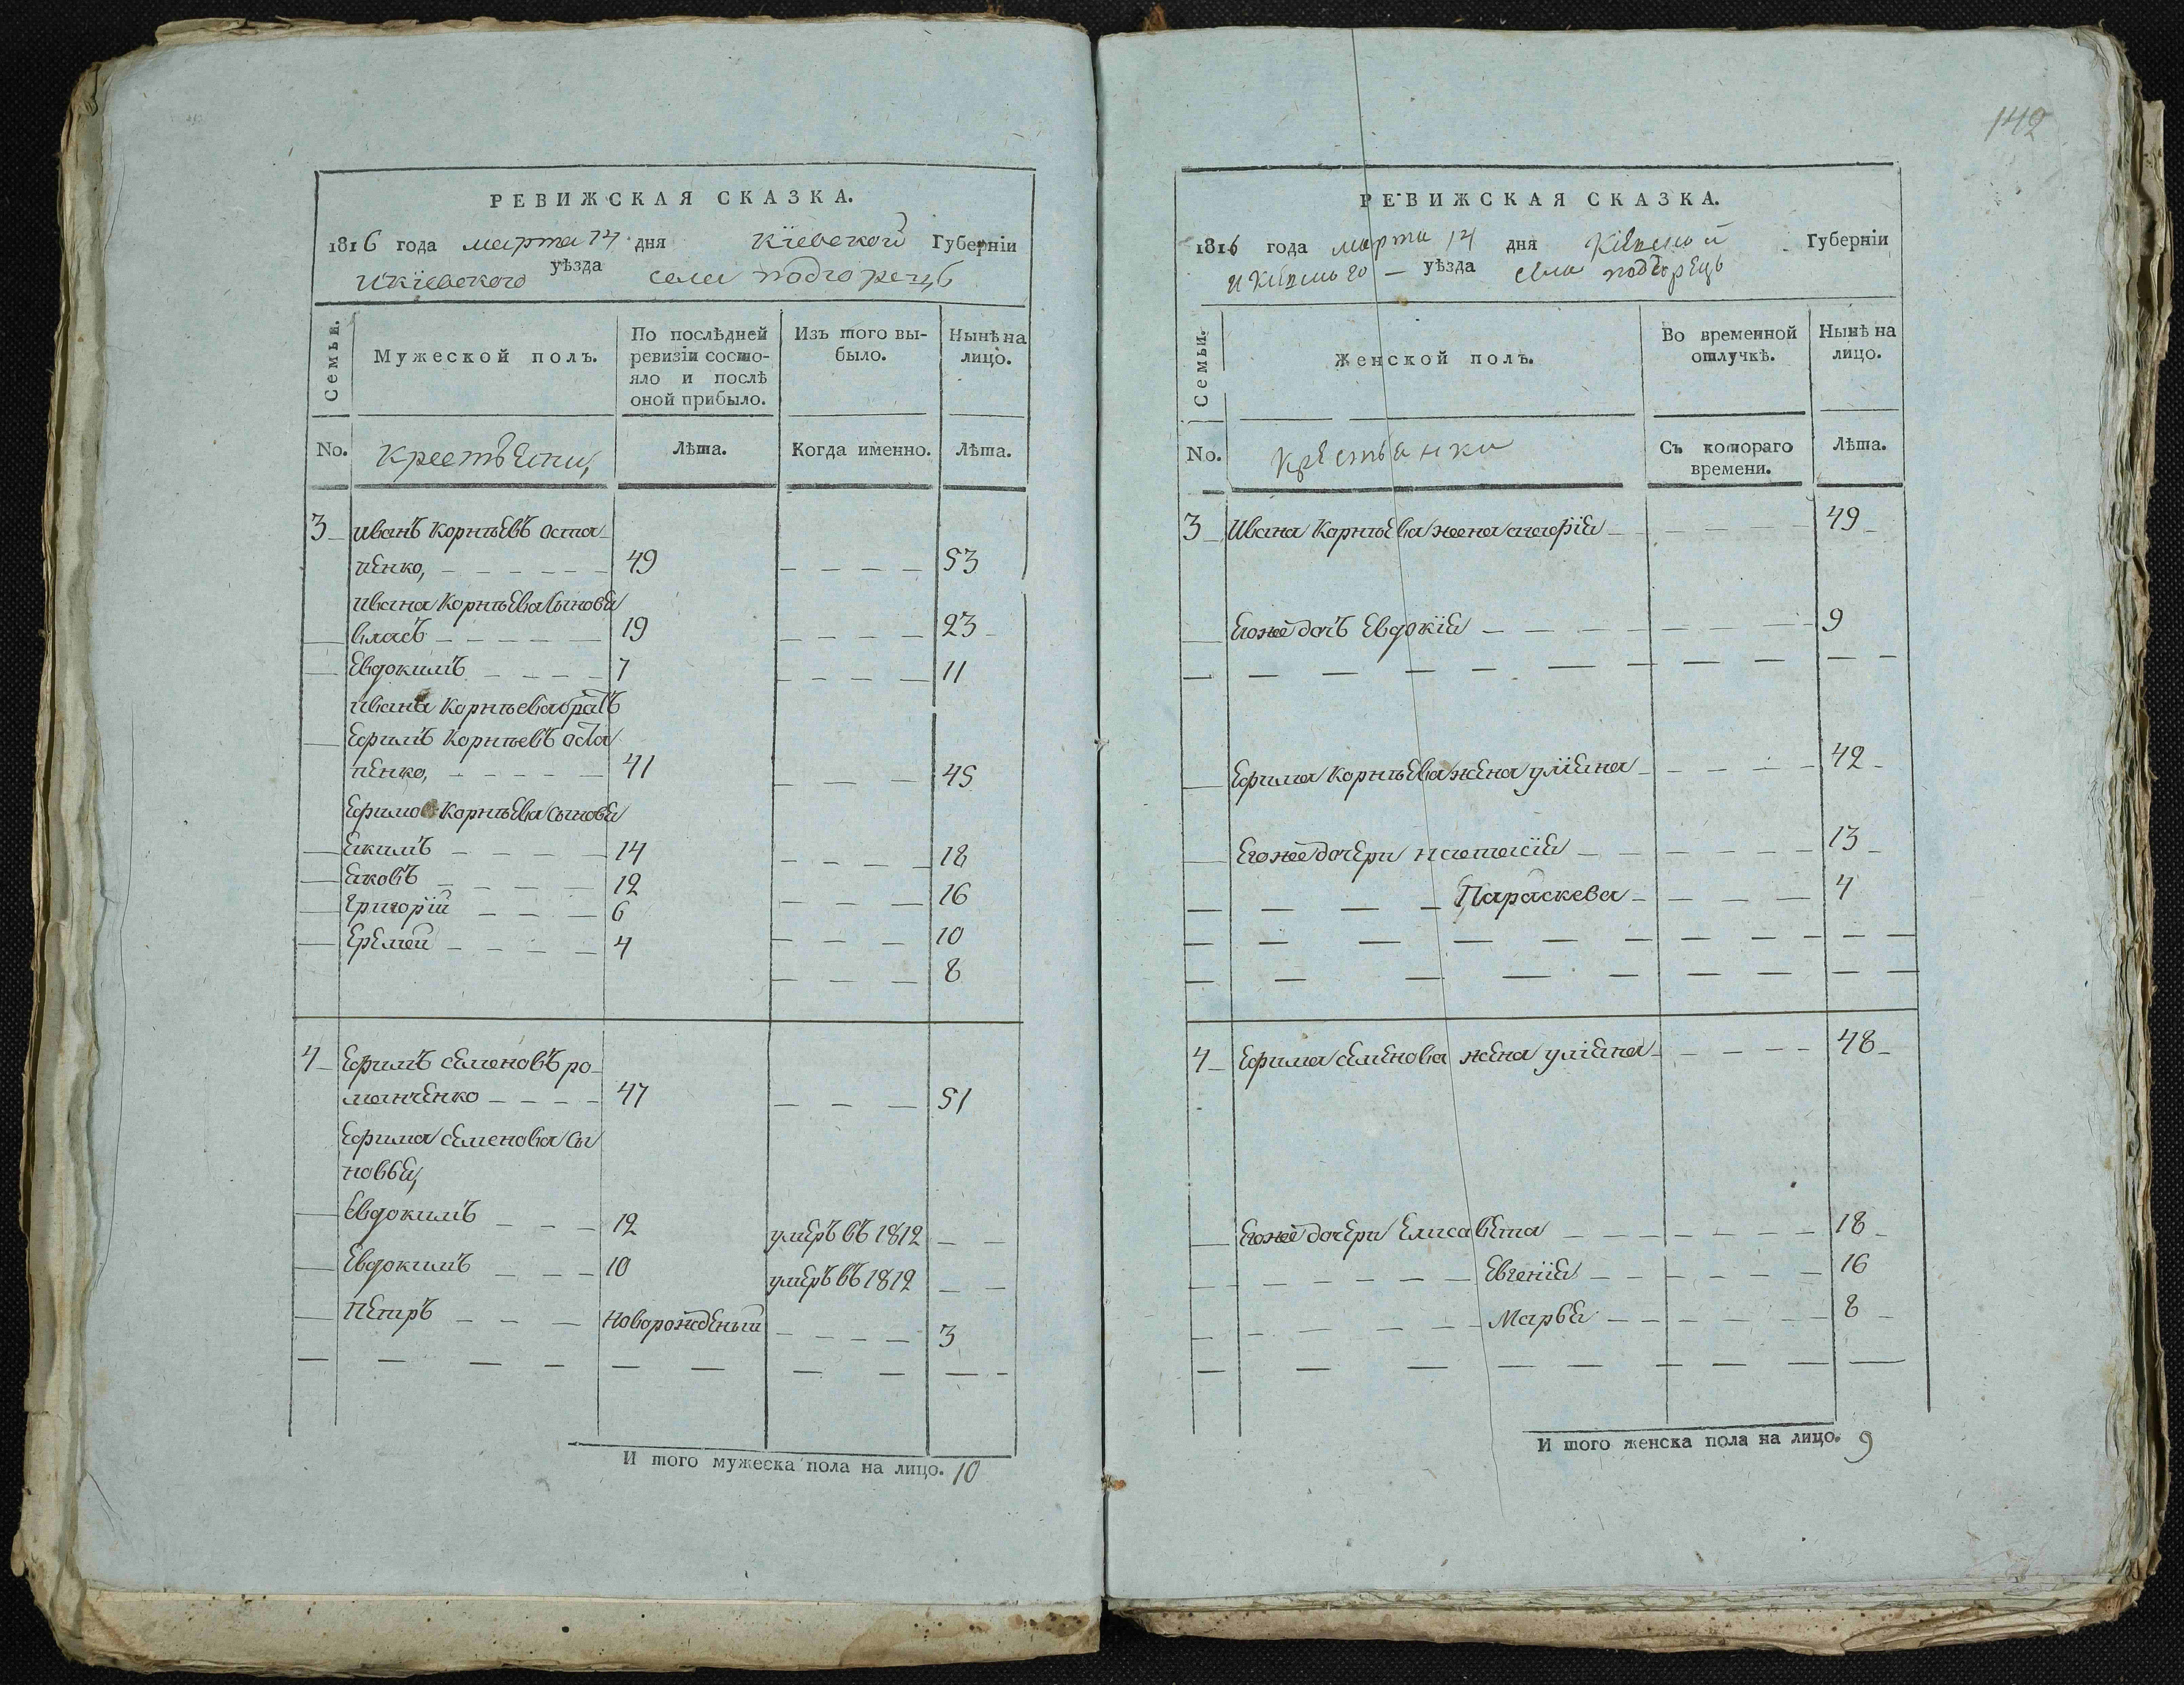 РЕВИЖСКАЯ СКАЗКА.
1816 года марта 14 дня Кіевской Губерніи
и кіевского уѣзда села подгорецъ
Семьи.
Мужеской полъ.
По послѣдней ревизіи состояло и послѣ оной прибыло.
Изъ того выбыло.
Нынѣ на лицо.
No. крестьяни, Лѣта. Когда именно. Лѣта.
3 иванъ Корнѣевъ оста
пенко, 49 53
ивана Корнѣева сыновя
власъ 19 23
Евдокимъ 7 11
ивана Корнѣева братъ
Ефимъ Корнѣевъ оста
пенко, 41 45
Ефима Корнѣева сыновя
Якимъ 14 18
Яковъ 12 16
Григорій 6 10
Еремей 4 8
4 Ефимъ семеновъ ро
манченко 47 51
Ефима семенова сы
новья,
Евдокимъ 12 умеръ въ 1812
Евдокимъ 10 умеръ въ 1812
петръ новорожденый 3
И того мужеска пола на лицо. 10
142
РЕВИЖСКАЯ СКАЗКА.
1816 года марта 14 дня Кіевской Губерніи
и Кіевского уѣзда села подгорецъ
Семьи.
Женской полъ.
Во временной отлучкѣ.
Нынѣ на лицо.
No. крестьянки Съ котораго времени. Лѣта.
3 Ивана Корнѣева жена агафія 49
Егоже дочъ Евдокія 9
Ефима Корнѣева жена уліяна 42
Егоже дочери настасія 13
Параскева 4
4 Ефима семенова жена уліяна 48
Егоже дочери Елисавета 18
Евгенія 16
Марья 8
И того женска пола на лицо. 9